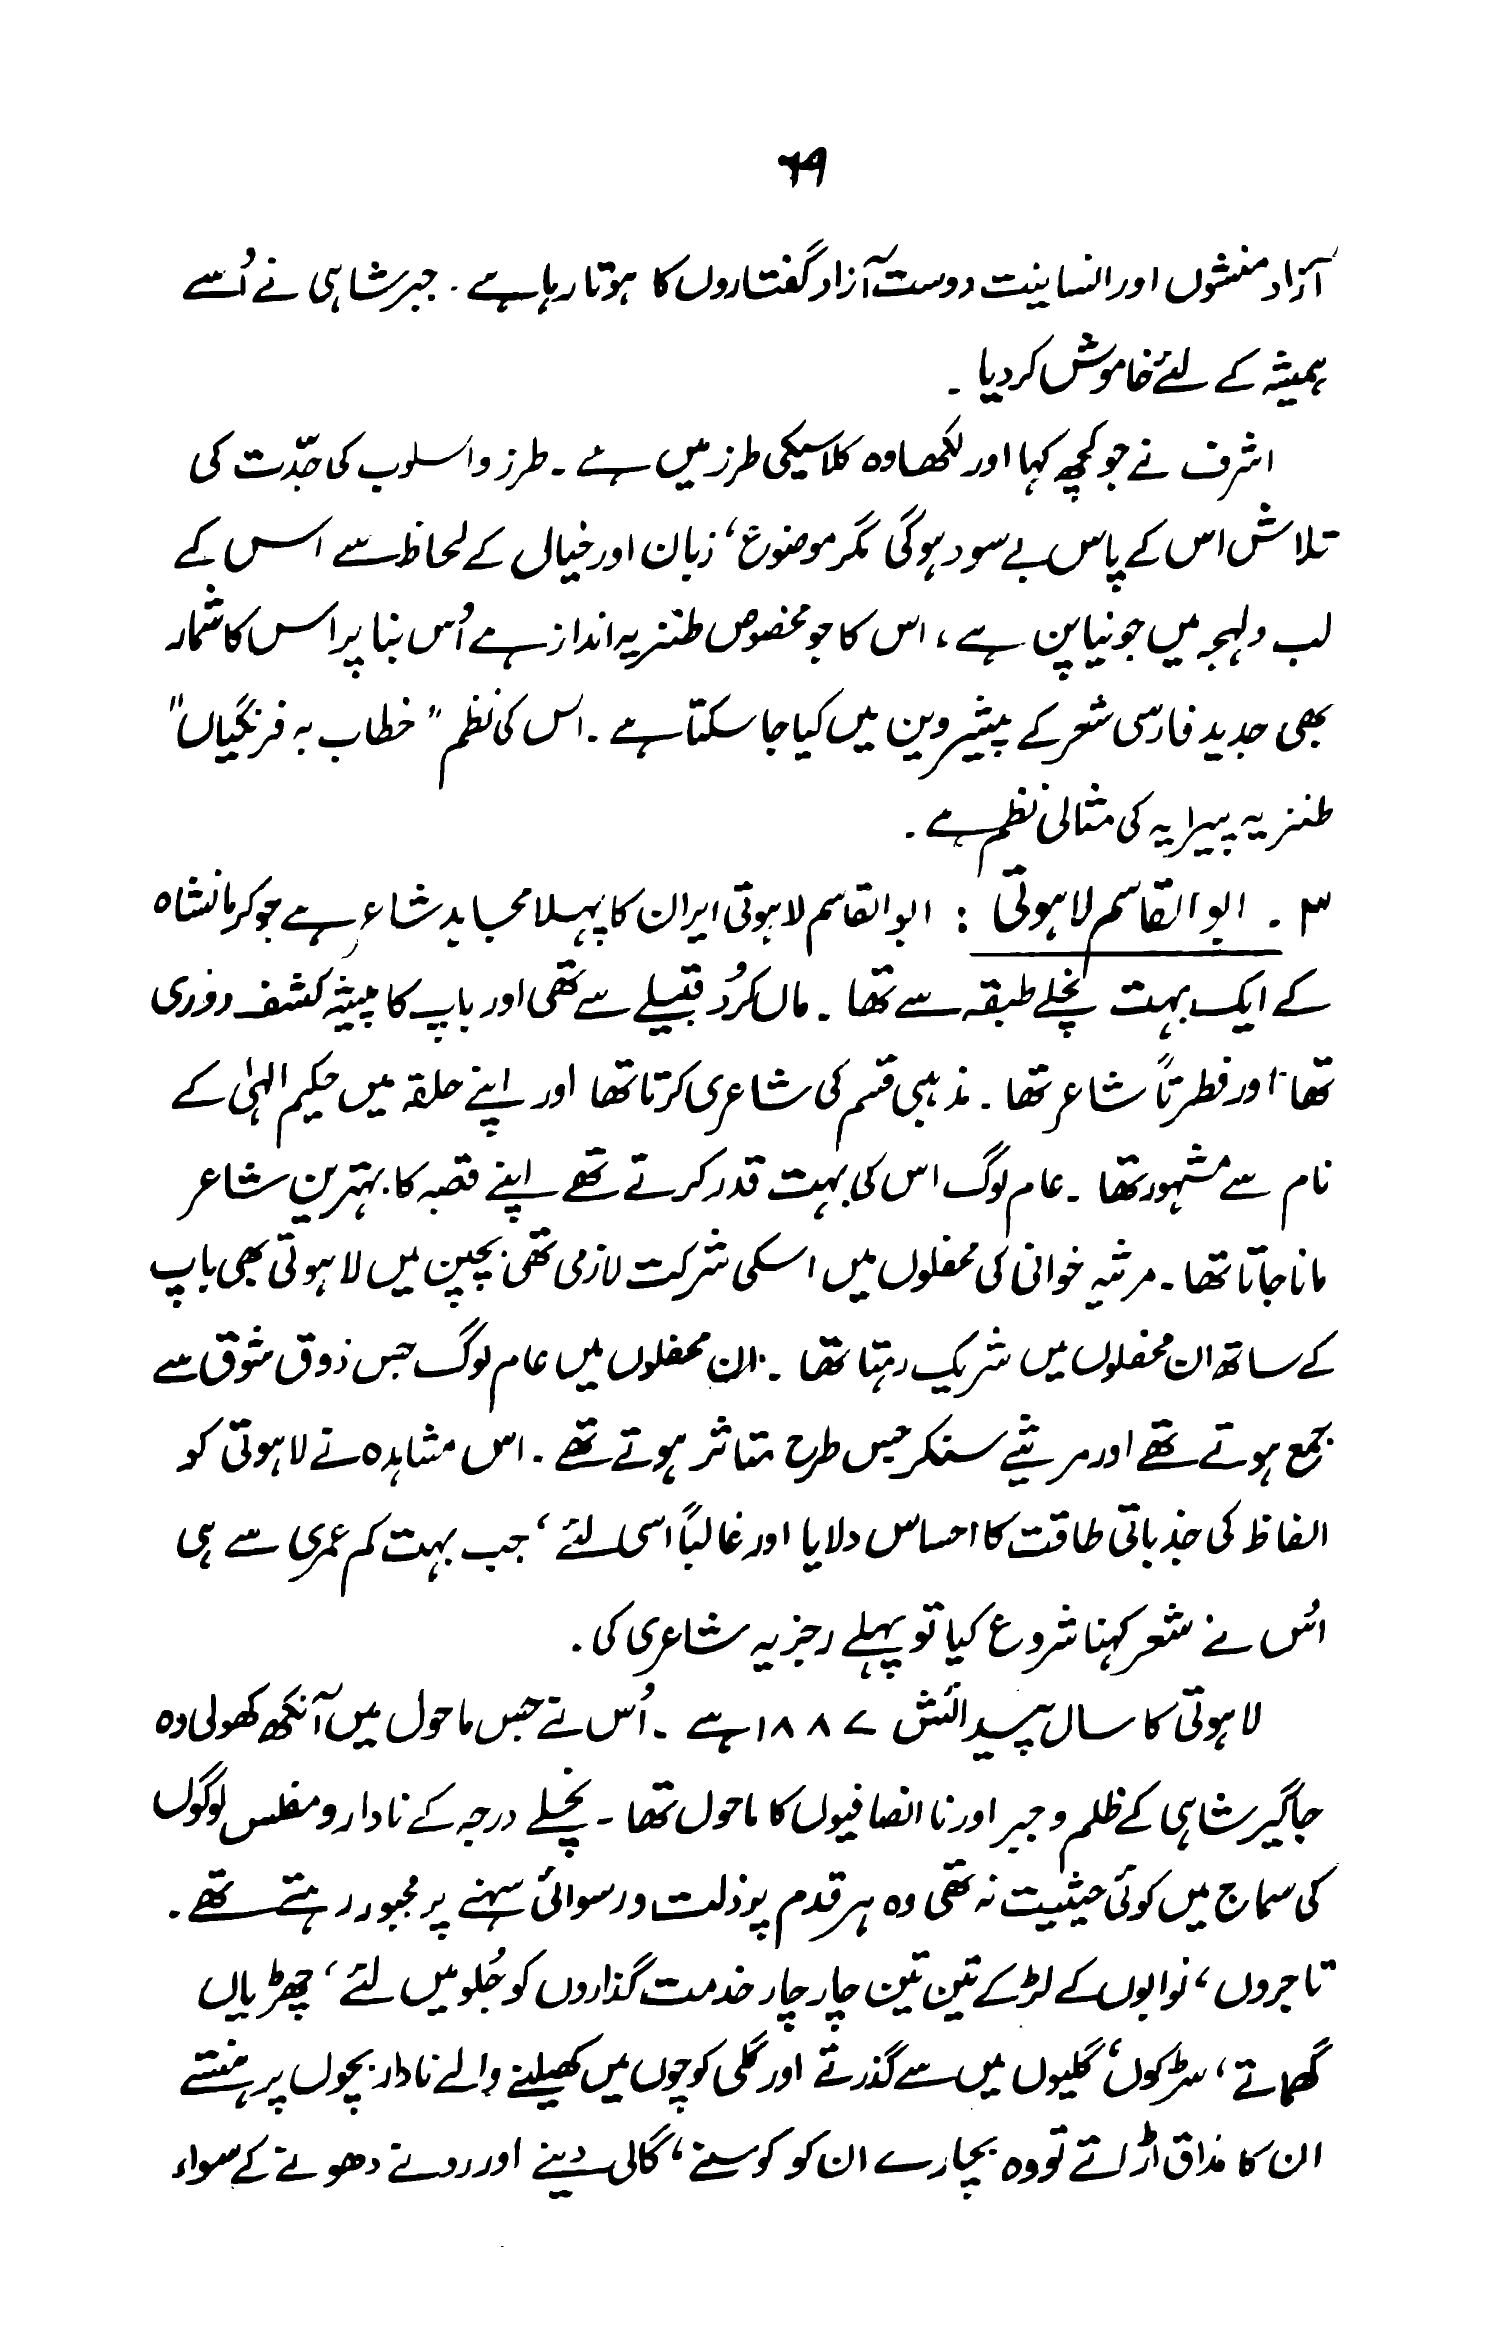 ۶۹
آزاد منشوں اور انسانیت دوست آزاد گفتاروں کا ہوتا رہا ہے ۔ جبر شاہی نے اُسے
ہمیشہ کے لئے خاموش کر دیا ۔
اشرف نے جو کچھ کہا اور لکھا وہ کلاسیکی طرز میں ہے ۔ طرز و اسلوب کی جدّت کی
تلاش اس کے پاس بے سود ہوگی مگر موضوع، زبان اور خیال کے لحاظ سے اس کے
لب و لہجہ میں جو نیا پن ہے، اس کا جو مخصوص طنزیہ انداز ہے اُس بنا پر اس کا شمار
بھی جدید فارسی شعر کے پیشروین میں کیا جا سکتا ہے ۔ اس کی نظم ”خطاب بہ فرنگیاں“
طنزیہ پیرایہ کی مثالی نظم ہے ۔
۳ ۔ ابوالقاسم لاہوتی : ابوالقاسم لاہوتی ایران کا پہلا مجاہد شاعر ہے جو کرمانشاہ
کے ایک بہت نچلے طبقہ سے تھا ۔ ماں کُرد قبیلے سے تھی اور باپ کا پیشہ کفش دوزی
تھا اور فطرتاً شاعر تھا ۔ مذہبی قسم کی شاعری کرتا تھا اور اپنے حلقہ میں حکیم الہیٰ کے
نام سے مشہور تھا ۔ عام لوگ اس کی بہت قدر کرتے تھے اپنے قصبہ کا بہترین شاعر
مانا جاتا تھا ۔ مرثیہ خوانی کی محفلوں میں اسکی شرکت لازمی تھی بچپن میں لاہوتی بھی باپ
کے ساتھ ان محفلوں میں شریک رہتا تھا ۔ ان محفلوں میں عام لوگ جس ذوق شوق سے
جمع ہوتے تھے اور مرثیے سنکر جس طرح متاثر ہوتے تھے ۔ اس مشاہدہ نے لاہوتی کو
الفاظ کی جذباتی طاقت کا احساس دلایا اور غالباً اسی لئے، جب بہت کم عمری سے ہی
اُس نے شعر کہنا شروع کیا تو پہلے رجزیہ شاعری کی ۔
لاہوتی کا سال پیدائش ۱۸۸۷ ہے ۔ اُس نے جس ماحول میں آنکھ کھولی وہ
جاگیر شاہی کے ظلم و جبر اور نا انصافیوں کا ماحول تھا ۔ نچلے درجہ کے نادار و مفلس لوگوں
کی سماج میں کوئی حیثیت نہ تھی وہ ہر قدم پر ذلت و رسوائی سہنے پر مجبور رہتے تھے ۔
تاجروں، نوابوں کے لڑکے تین تین چار چار خدمت گذاروں کو جُلو میں لئے، چھڑیاں
گھماتے، سڑکوں، گلیوں میں سے گذرتے اور گلی کوچوں میں کھیلنے والے نادار بچوں پر ہنستے
ان کا مذاق اڑاتے تو وہ بچارے ان کو کوسنے، گالی دینے اور رونے دھونے کے سواء